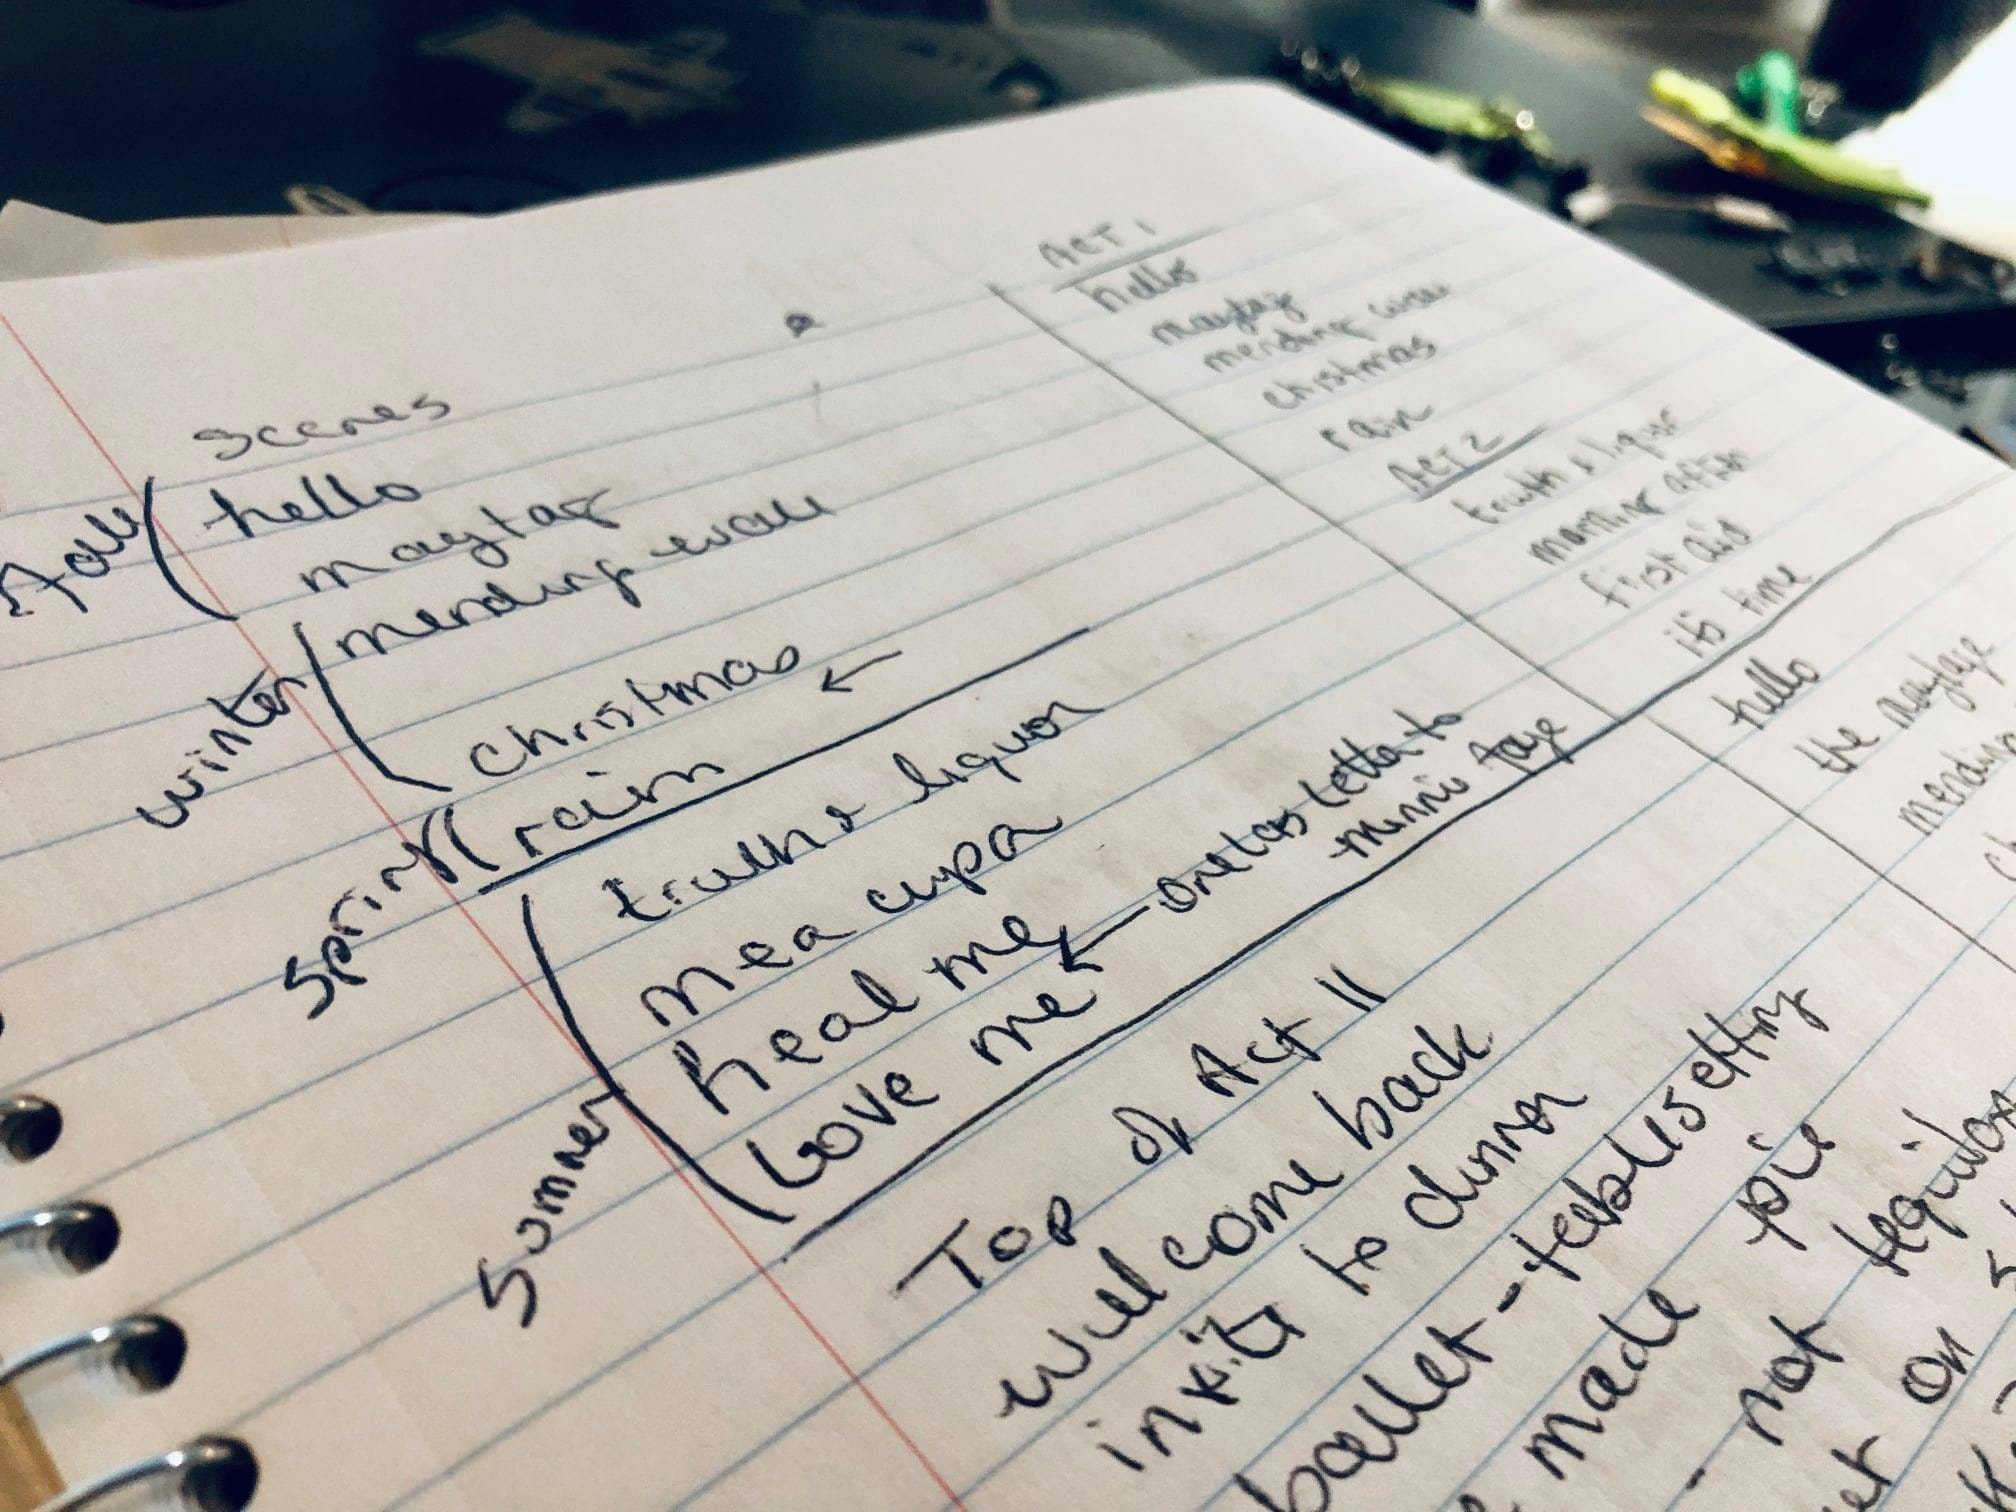 Scenes
Fall
hello
maytag
winter
mending wall
Christmas
Spring
rain
Summer
truth & liquor
mea cupa
heal me
love me
one last letter to
minnie faye
ACT 1
hello
maytag
mending wall
christmas
rain
ACT 2
truth & liquor
morning after
first aid
it's time
hello
the
mending
Top of Act II
welcome back
invite to dinner
ballet - table setting
made pie
- not tequila
on